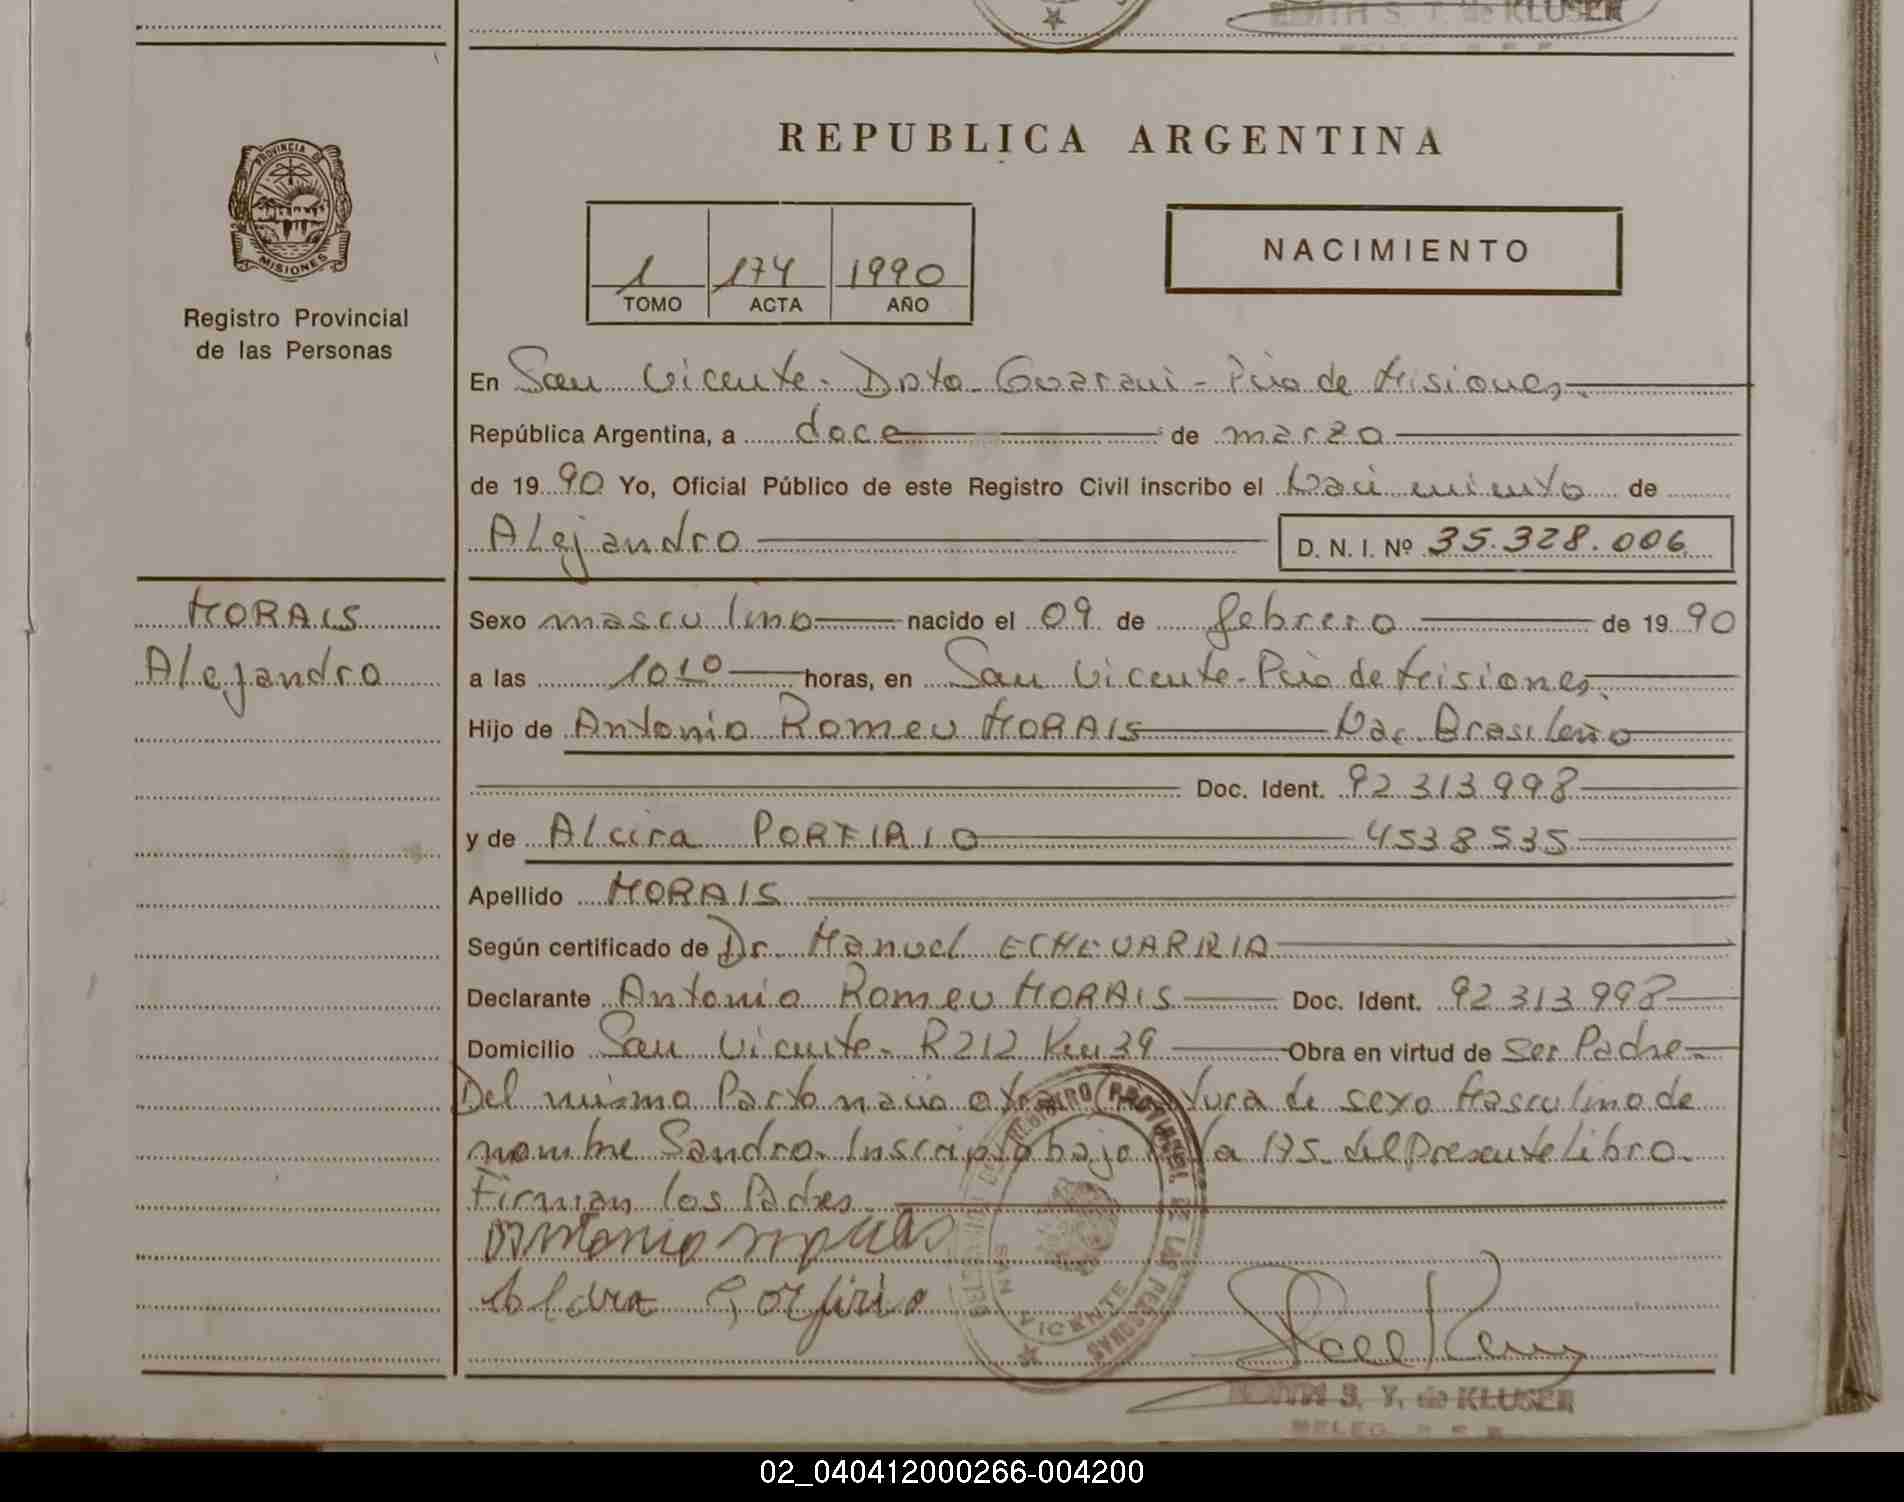 EDITH S. T. de KLUSER
REPUBLICA ARGENTINA
PROVINCIA DE
MISIONES
Registro Provincial
de las Personas
1 174 1990
TOMO ACTA AÑO
NACIMIENTO
En San Vicente - Dpto. Guarani - Pcia de Misiones.
República Argentina, a doce de marzo
de 1990 Yo, Oficial Público de este Registro Civil inscribo el Nacimiento de
Alejandro D. N. I. Nº 35.328.006
MORAIS
Alejandro
Sexo masculino nacido el 09 de febrero de 1990
a las 10 10 horas, en San Vicente - Pcia de Misiones.
Hijo de Antonio Romeu MORAIS Nac. Brasileño
Doc. Ident. 92 313 998
y de Alcira PORFIRIO 4538535
Apellido MORAIS
Según certificado de Dr. Manuel ECHEVARRIA
Declarante Antonio Romeu MORAIS Doc. Ident. 92 313 998
Domicilio San Vicente - R212 Km 39 Obra en virtud de Ser Padre -
Del mismo Parto nacio otra tura de sexo Masculino de
nombre Sandro. Inscripto bajo la 175 del Presente Libro.
Firman los Padres
Antonio morais
Alcira Porfirio
SAN VICENTE
EDITH S. T. de KLUSER
02_040412000266-004200